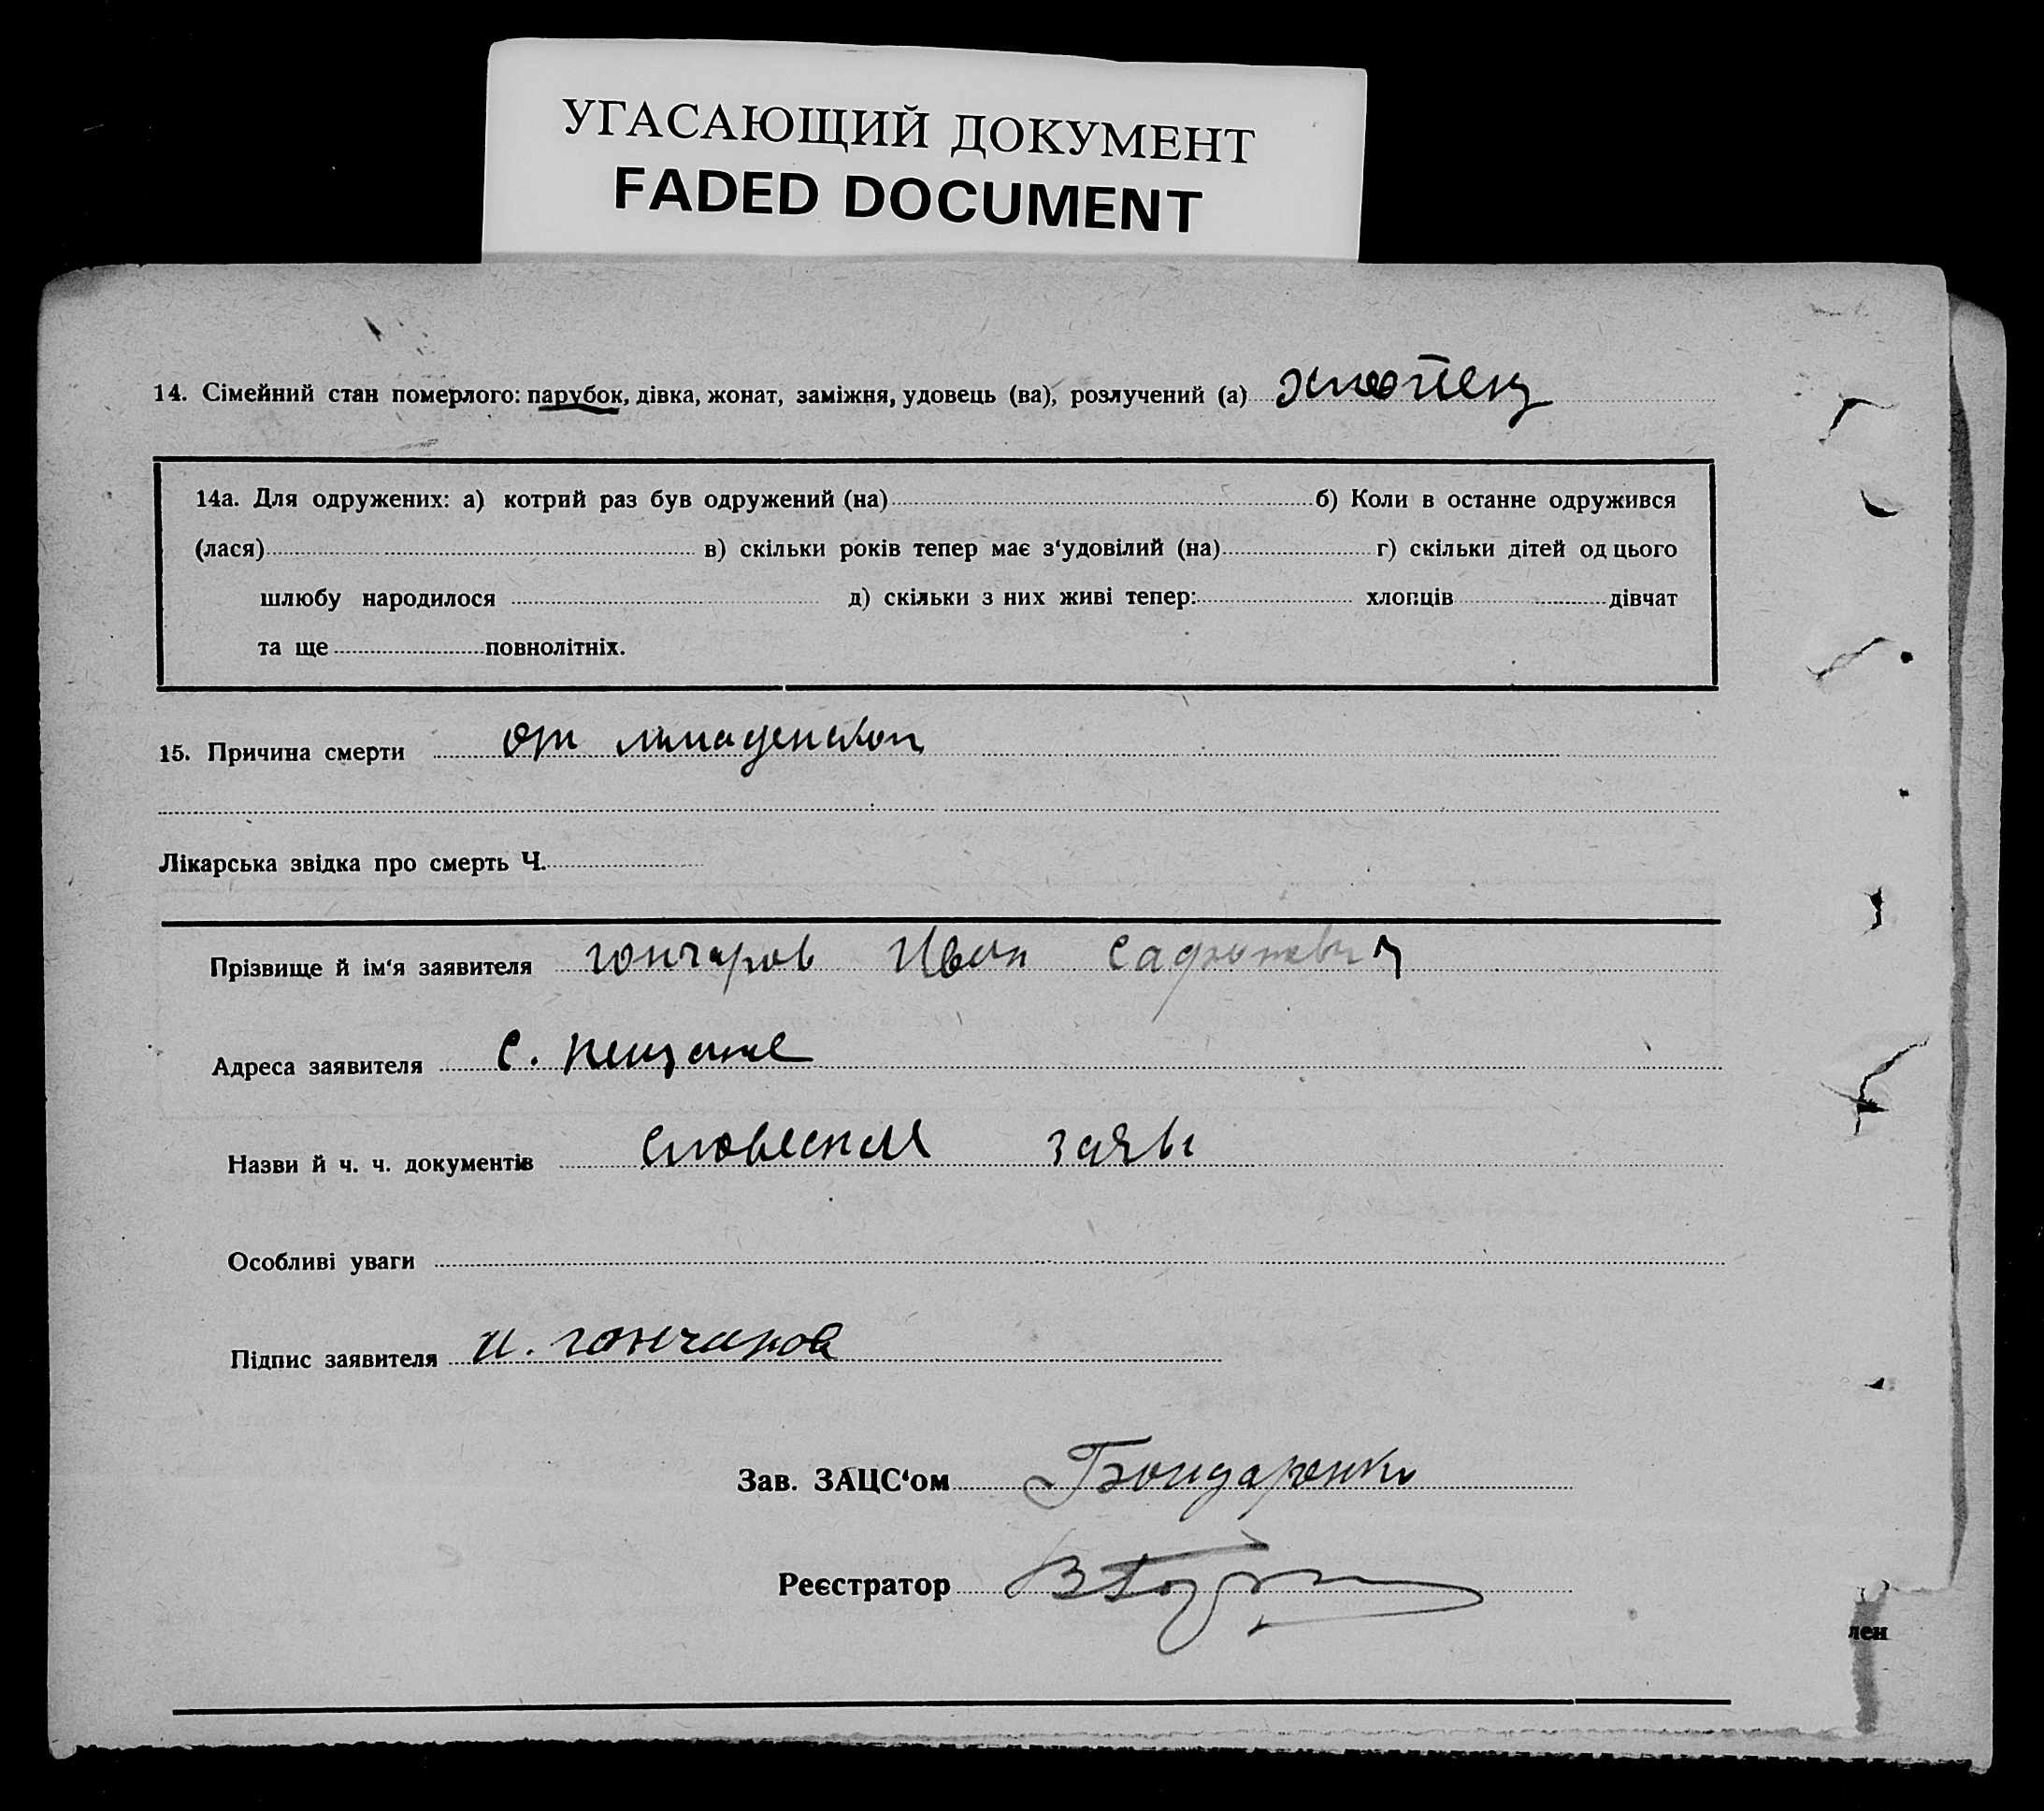 УГАСАЮЩИЙ ДОКУМЕНТ
FADED DOCUMENT
14. Сімейний стан померлого: парубок, дівка, жонат, заміжня, удовець (ва), розлучений (а) хлопец
14а. Для одружених: а) котрий раз був одружений (на) б) Коли в останне одружився
(лася) в) скільки років тепер має з‘удовілий (на) г) скільки дітей од цього
шлюбу народилося д) скільки з них живі тепер: хлопців дівчат
та ще повнолітніх.
15. Причина смерти от младенской
Лікарська звідка про смерть Ч.
Прізвище й ім‘я заявителя гончаров Иван
Адреса заявителя с. пещане
Назви й ч. ч. документів словесная заява
Особливі уваги
Підпис заявителя и. гончаров
Зав. ЗАЦС‘ом Бондаренко
Реєстратор
лен